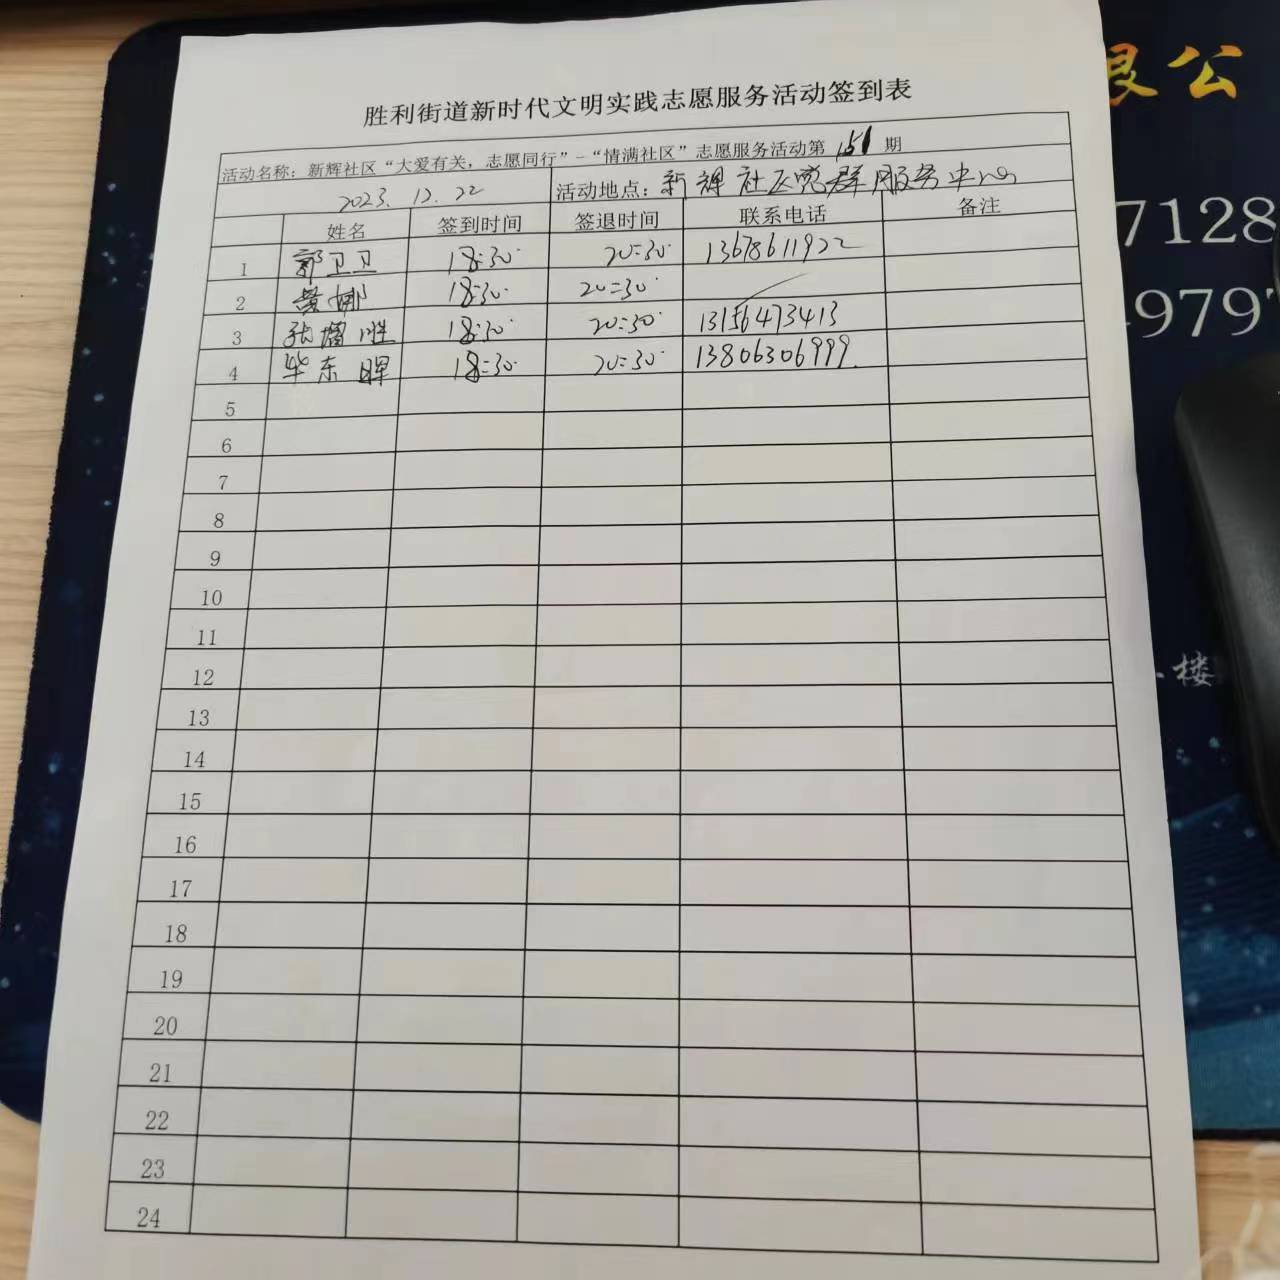 胜利街道新时代文明实践志愿服务活动签到表
活动名称：新辉社区“大爱有关，志愿同行”-“情满社区”志愿服务活动第151期
2023.12.22 活动地点：新辉社区党群服务中心
姓名 签到时间 签退时间 联系电话 备注
1 郭卫卫 18:30 20:30 13678611922
2 娜 18:30 20:30
3 张增胜 18:30 20:30 13156473413
4 华东晖 18:30 20:30 13806306999
5
6
7
8
9
10
11
12
13
14
15
16
17
18
19
20
21
22
23
24
限公
7128
4979
楼